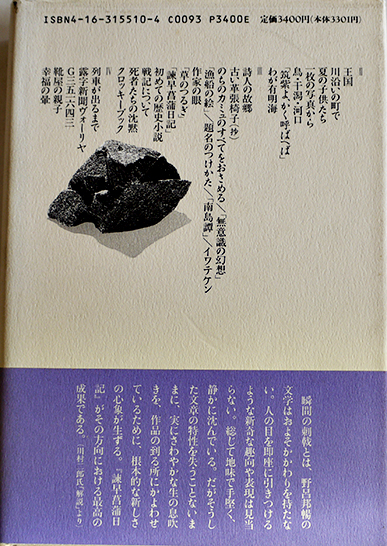 ISBN4-16-315510-4 C0093 P3400E
定価3400円(本体3301円)
II
王国
川沿いの町で
夏の子供たち
一枚の写真から
鳥・干潟・河口
「筑紫よ、かく呼ばへば」
わが有明海
III
詩人の故郷
古い革張椅子(抄)
のちのカミュのすべてをおさめる/「無意識の幻想」
「漁船の絵」/題名のつけかた/「南島譚」/イワテケン
作家の眼
「草のつるぎ」
「諫早菖蒲日記」
初めての歴史小説
戦記について
死者たちの沈黙
クロッキーブック
IV
列車が出るまで
露字新聞ヴォーリヤ
G三五一六四三
靴屋の親子
幸福の暈
瞬間の刺戟とは、野呂邦暢の
文学はおよそかかわりを持たな
い。人の目を即座に引きつける
ような新奇な趣向や表現は見当
らない。総じて地味で手堅く、
静かに沈んでいる。だがそうし
た文章の特性を失うことないま
まに、実にさわやかな生の息吹
きを、作品の到る所にかよわせ
ているために、根本的な新しさ
の心象が生ずる。『諫早菖蒲日
記』がその方向における最高の
成果である。(川村二郎氏「解説」より)